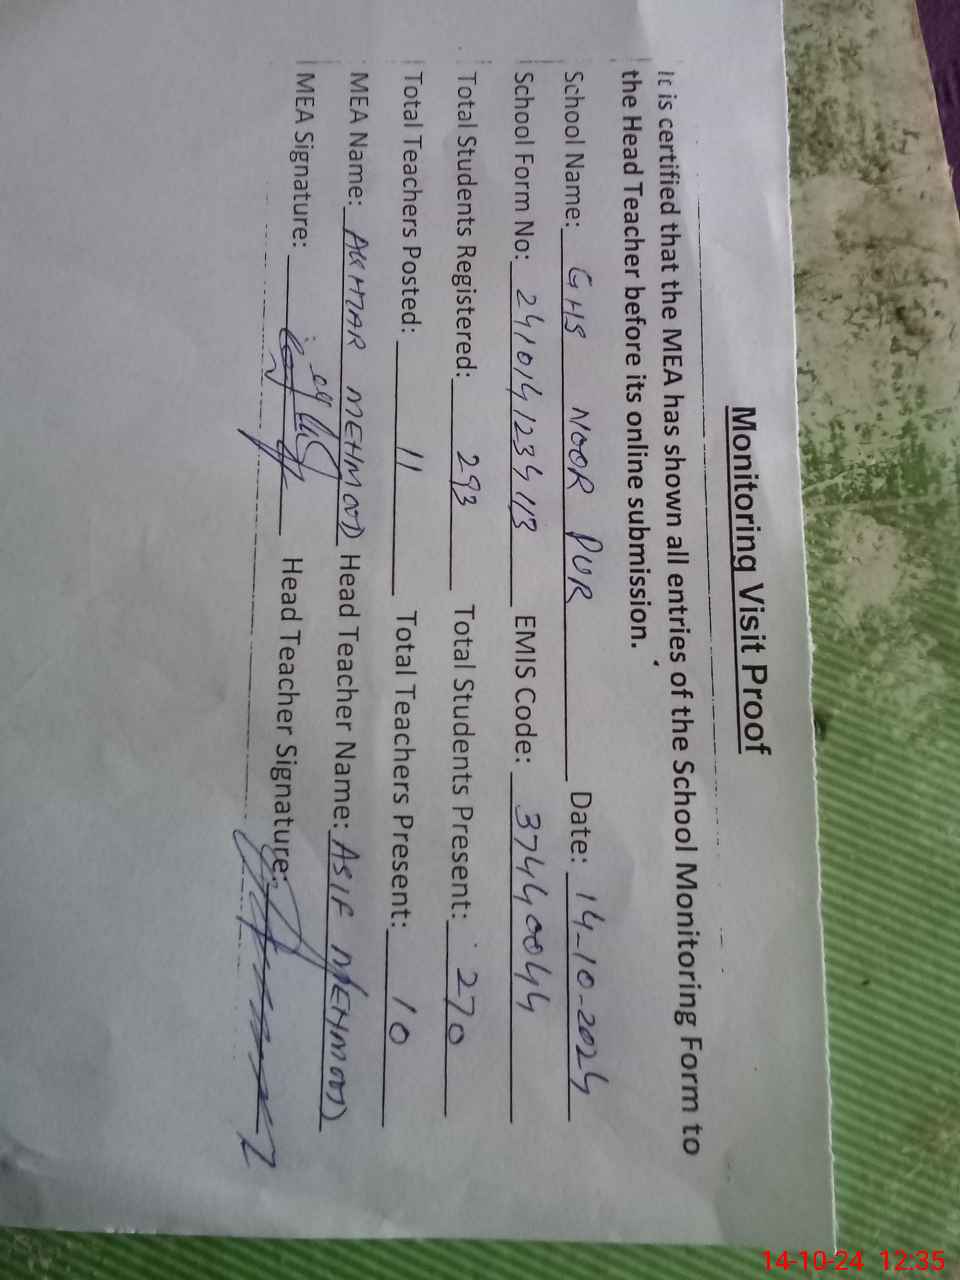 Monitoring Visit Proof
It is certified that the MEA has shown all entries of the School Monitoring Form to
the Head Teacher before its online submission.
School Name: GHS NOOR PUR Date: 14-10-2024
School Form No: 241014123413 EMIS Code: 37440044
Total Students Registered: 293 Total Students Present: 270
Total Teachers Posted: 11 Total Teachers Present: 10
MEA Name: AKHTAR MEHMOOD Head Teacher Name: ASIF MEHMOOD
MEA Signature: Head Teacher Signature:
14-10-24 12:35